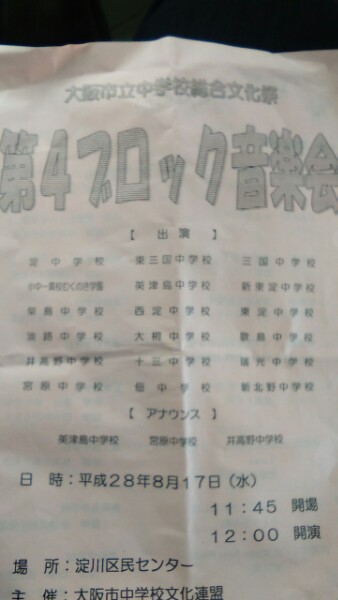 大阪市立中学校総合文化祭
第4ブロック音楽会
【 出 演 】
淀中学校 東三国中学校 三国中学校
小中一貫校むくのき学園 美津島中学校 新東淀中学校
柴島中学校 西淀中学校 東淀中学校
淡路中学校 大桐中学校 歌島中学校
井高野中学校 十三中学校 瑞光中学校
宮原中学校 佃中学校 新北野中学校
【 アナウンス 】
美津島中学校 宮原中学校 井高野中学校
日 時:平成28年8月17日(水)
11:45 開場
12:00 開演
場 所:淀川区民センター
主 催:大阪市中学校文化連盟